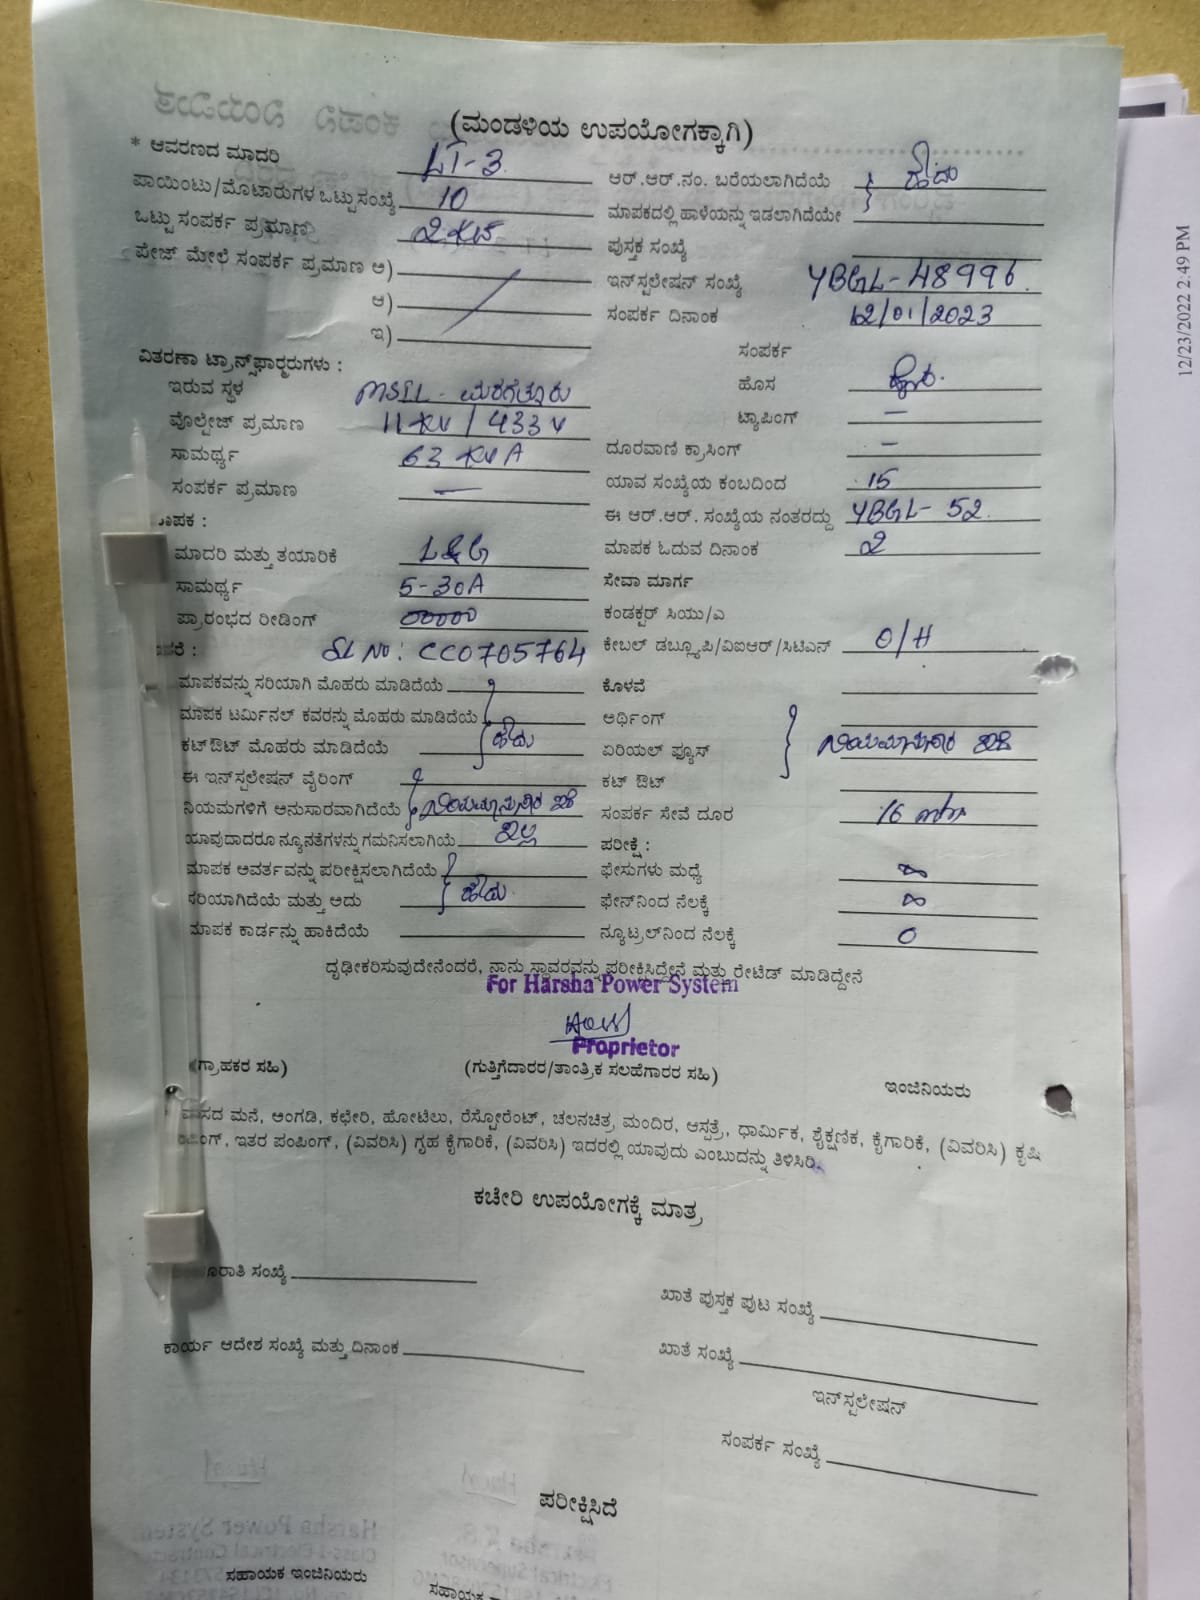 (ಮಂಡಳಿಯ ಉಪಯೋಗಕ್ಕಾಗಿ)
* ಆವರಣದ ಮಾದರಿ LT-3
ಪಾಯಿಂಟು/ಮೊಟಾರುಗಳ ಒಟ್ಟು ಸಂಖ್ಯೆ 10
ಒಟ್ಟು ಸಂಪರ್ಕ ಪ್ರಮಾಣ 2 KW
ಪೇಜ್ ಮೇಲೆ ಸಂಪರ್ಕ ಪ್ರಮಾಣ ಅ)
ಆ)
ಇ)
ಆರ್.ಆರ್.ನಂ. ಬರೆಯಲಾಗಿದೆಯೆ ಹೌದು
ಮಾಪಕದಲ್ಲಿ ಹಾಳೆಯನ್ನು ಇಡಲಾಗಿದೆಯೇ
ಪುಸ್ತಕ ಸಂಖ್ಯೆ
ಇನ್‌ಸ್ಟಲೇಷನ್ ಸಂಖ್ಯೆ YBGL-48996.
ಸಂಪರ್ಕ ದಿನಾಂಕ 12/01/2023
ವಿತರಣಾ ಟ್ರಾನ್ಸ್‌ಫಾರ್ಮರುಗಳು :
ಇರುವ ಸ್ಥಳ MSIL-
ವೊಲ್ಟೇಜ್ ಪ್ರಮಾಣ 11 KV / 433 V
ಸಾಮರ್ಥ್ಯ 63 KVA
ಸಂಪರ್ಕ ಪ್ರಮಾಣ —
ಸಂಪರ್ಕ
ಹೊಸ
ಟ್ಯಾಪಿಂಗ್ —
ದೂರವಾಣಿ ಕ್ರಾಸಿಂಗ್ —
ಯಾವ ಸಂಖ್ಯೆಯ ಕಂಬದಿಂದ 15
ಈ ಆರ್.ಆರ್. ಸಂಖ್ಯೆಯ ನಂತರದ್ದು YBGL-52.
ಮಾಪಕ ಓದುವ ದಿನಾಂಕ 2
ಸೇವಾ ಮಾರ್ಗ
ಕಂಡಕ್ಟರ್ ಸಿಯು/ಎ
ಕೇಬಲ್ ಡಬ್ಲ್ಯೂಪಿ/ವಿಐಆರ್/ಸಿಟಿಎನ್ O/H
ಮಾದರಿ ಮತ್ತು ತಯಾರಿಕೆ L&G
ಸಾಮರ್ಥ್ಯ 5-30A
ಪ್ರಾರಂಭದ ರೀಡಿಂಗ್ 00000
SL NO: CC0705764
ಮಾಪಕವನ್ನು ಸರಿಯಾಗಿ ಮೊಹರು ಮಾಡಿದೆಯೆ
ಮಾಪಕ ಟರ್ಮಿನಲ್ ಕವರನ್ನು ಮೊಹರು ಮಾಡಿದೆಯೆ
ಕಟ್‌ಔಟ್ ಮೊಹರು ಮಾಡಿದೆಯೆ ಹೌದು
ಈ ಇನ್‌ಸ್ಟಲೇಷನ್ ವೈರಿಂಗ್
ನಿಯಮಗಳಿಗೆ ಅನುಸಾರವಾಗಿದೆಯೆ ನಿಯಮಾನುಸಾರ ಇದೆ
ಯಾವುದಾದರೂ ನ್ಯೂನತೆಗಳನ್ನು ಗಮನಿಸಲಾಗಿಯೆ ಇಲ್ಲ
ಮಾಪಕ ಅವರ್ತವನ್ನು ಪರೀಕ್ಷಿಸಲಾಗಿದೆಯೆ
ಸರಿಯಾಗಿದೆಯೆ ಮತ್ತು ಅದು ಹೌದು.
ಮಾಪಕ ಕಾರ್ಡನ್ನು ಹಾಕಿದೆಯೆ
ಕೊಳವೆ
ಅರ್ಥಿಂಗ್
ಏರಿಯಲ್ ಫ್ಯೂಸ್ ನಿಯಮಾನುಸಾರ ಇದೆ
ಕಟ್ ಔಟ್
ಸಂಪರ್ಕ ಸೇವೆ ದೂರ 16
ಪರೀಕ್ಷೆ :
ಫೇಸುಗಳು ಮಧ್ಯೆ ∞
ಫೇನ್‌ನಿಂದ ನೆಲಕ್ಕೆ ∞
ನ್ಯೂಟ್ರಲ್‌ನಿಂದ ನೆಲಕ್ಕೆ 0
ದೃಢೀಕರಿಸುವುದೇನೆಂದರೆ, ನಾನು ಸ್ಥಾವರವನ್ನು ಪರೀಕ್ಷಿಸಿದ್ದೇನೆ ಮತ್ತು ರೇಟೆಡ್ ಮಾಡಿದ್ದೇನೆ
For Harsha Power System
Proprietor
(ಗ್ರಾಹಕರ ಸಹಿ) (ಗುತ್ತಿಗೆದಾರರ/ತಾಂತ್ರಿಕ ಸಲಹೆಗಾರರ ಸಹಿ) ಇಂಜಿನಿಯರು
ಮನೆ, ಅಂಗಡಿ, ಕಛೇರಿ, ಹೋಟೆಲು, ರೆಸ್ಟೋರೆಂಟ್, ಚಲನಚಿತ್ರ ಮಂದಿರ, ಆಸ್ಪತ್ರೆ, ಧಾರ್ಮಿಕ, ಶೈಕ್ಷಣಿಕ, ಕೈಗಾರಿಕೆ, (ವಿವರಿಸಿ) ಕೃಷಿ
ಇತರ ಪಂಪಿಂಗ್, (ವಿವರಿಸಿ) ಗೃಹ ಕೈಗಾರಿಕೆ, (ವಿವರಿಸಿ) ಇದರಲ್ಲಿ ಯಾವುದು ಎಂಬುದನ್ನು ತಿಳಿಸಿರಿ.
ಕಚೇರಿ ಉಪಯೋಗಕ್ಕೆ ಮಾತ್ರ
ಸಂಖ್ಯೆ
ಖಾತೆ ಪುಸ್ತಕ ಪುಟ ಸಂಖ್ಯೆ
ಕಾರ್ಯ ಆದೇಶ ಸಂಖ್ಯೆ ಮತ್ತು ದಿನಾಂಕ
ಖಾತೆ ಸಂಖ್ಯೆ
ಇನ್‌ಸ್ಟಲೇಷನ್
ಸಂಪರ್ಕ ಸಂಖ್ಯೆ
ಪರೀಕ್ಷಿಸಿದೆ
ಸಹಾಯಕ ಇಂಜಿನಿಯರು
ಸಹಾಯಕ
12/23/2022 2:49 PM